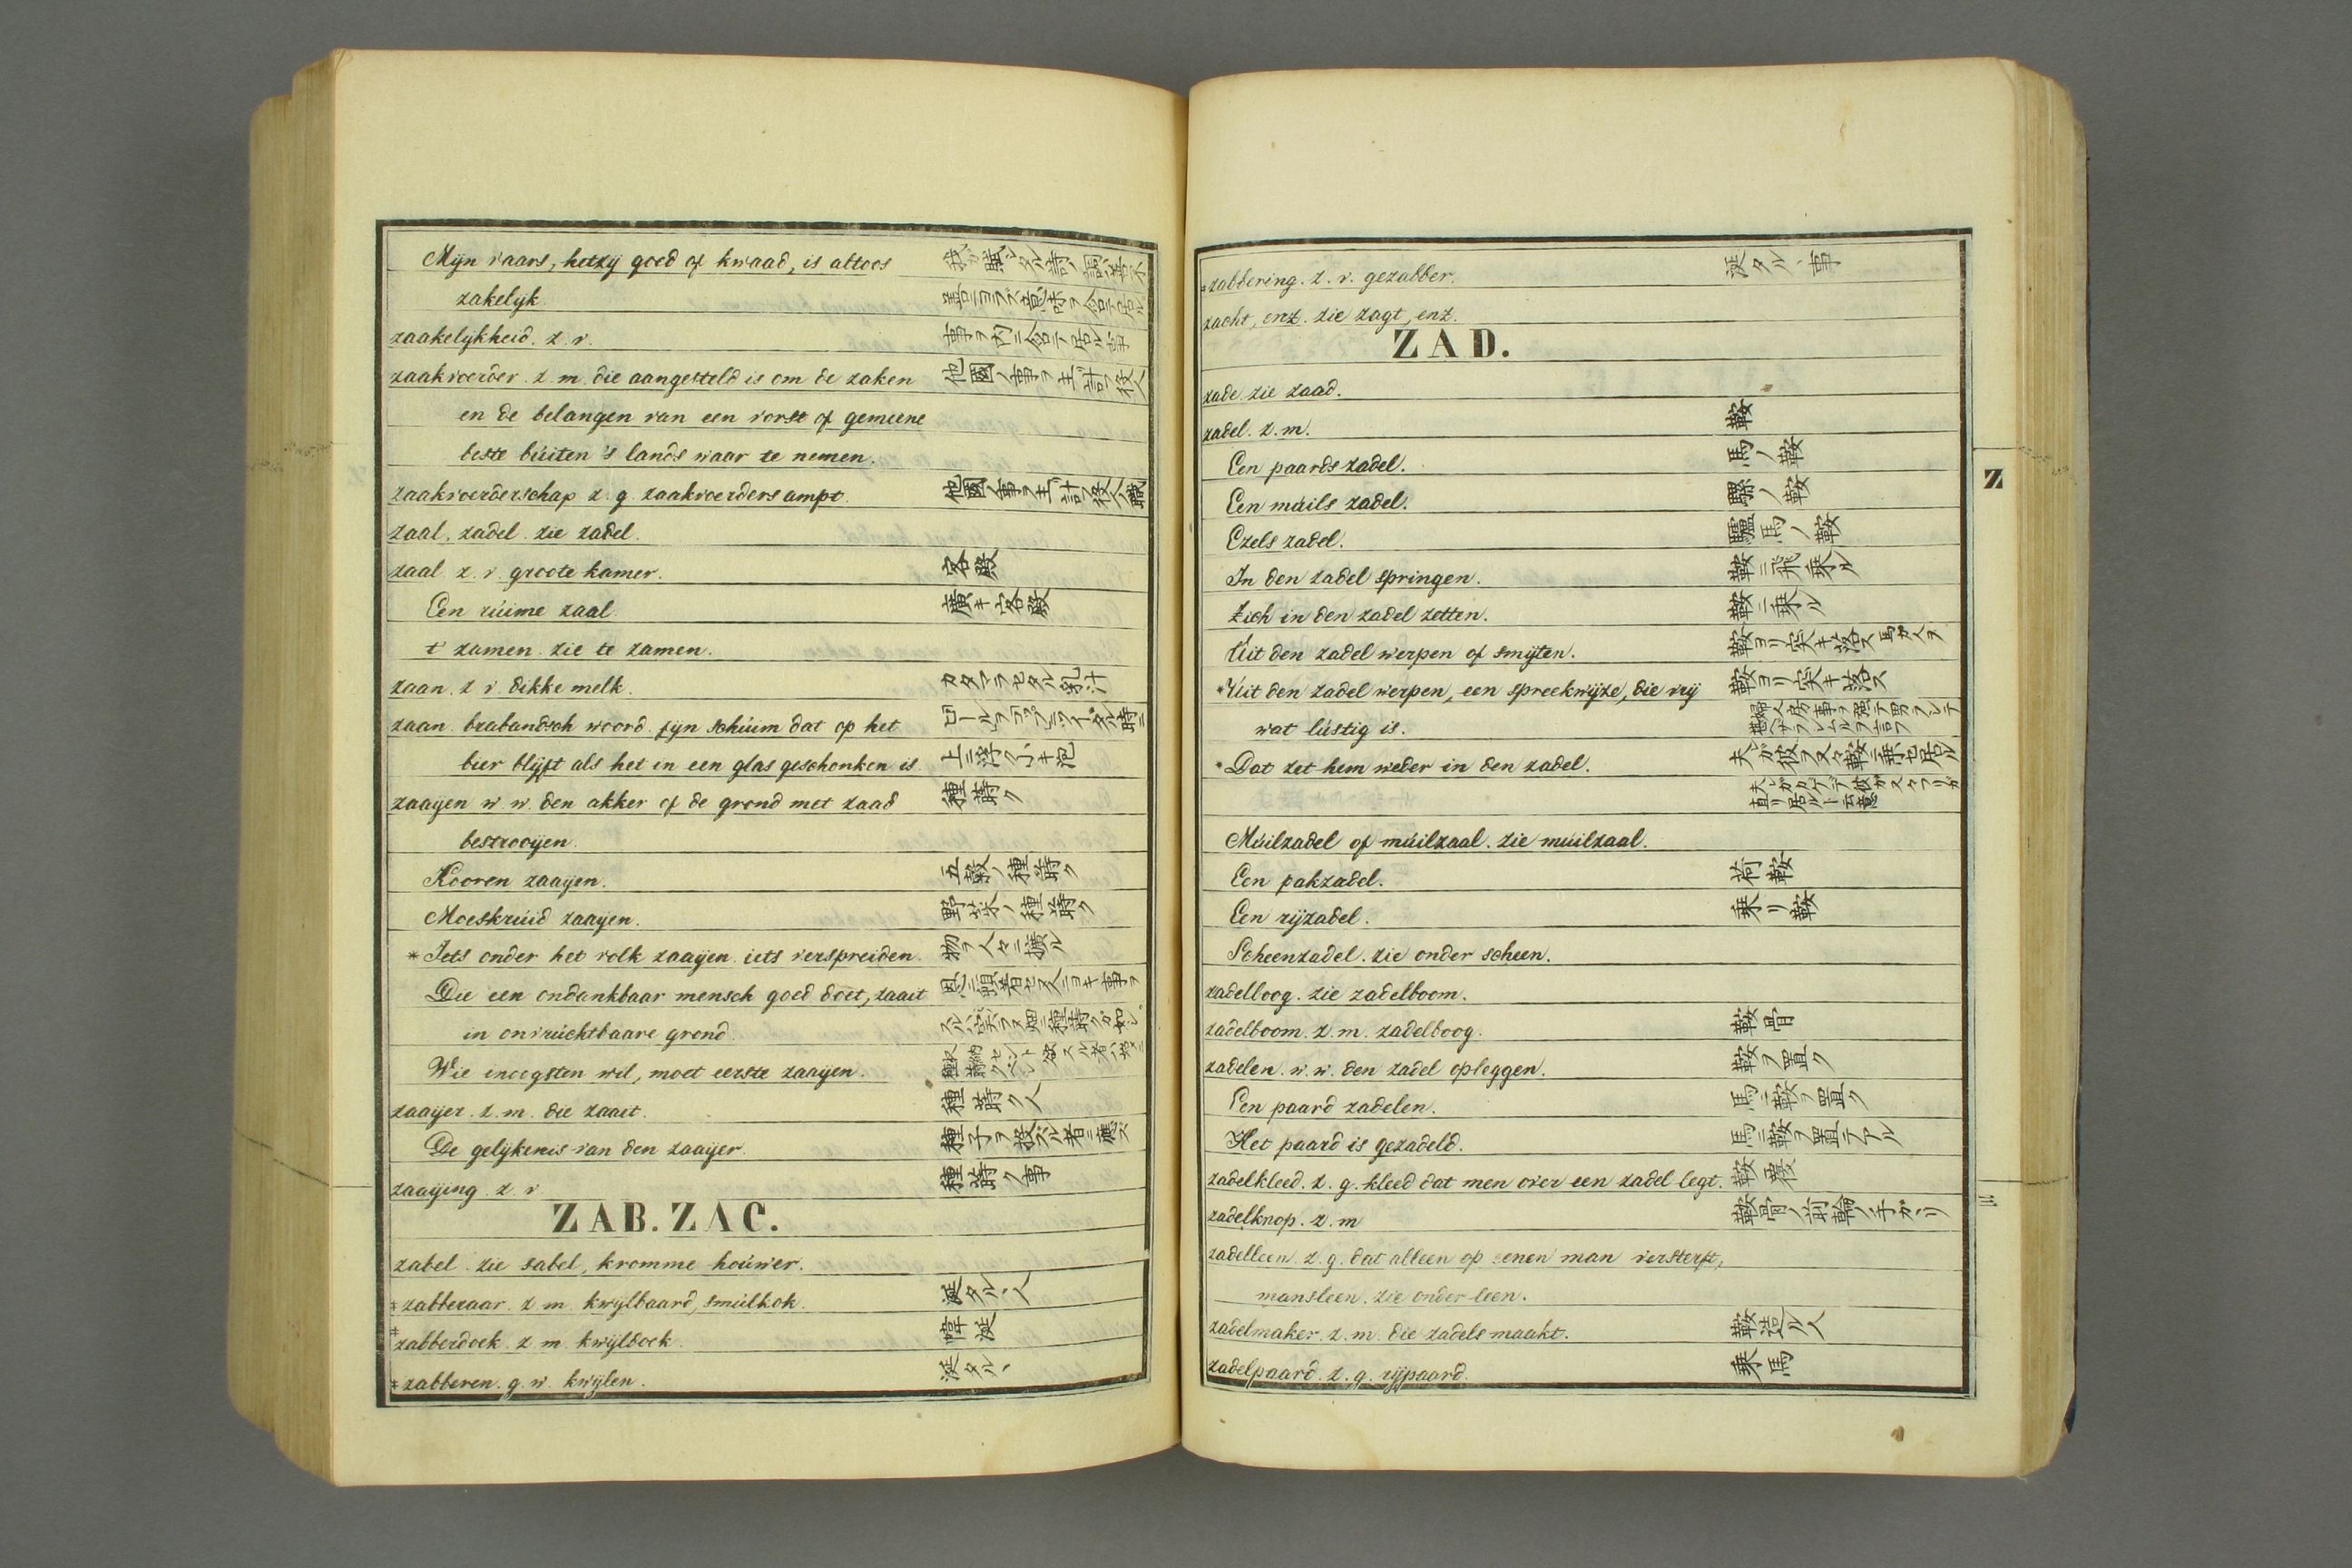 Mijn vaars, hetzy goed of kwaad, is altoos
zakelyk.
zaakelykheid. z. v. 事ヲ内ニ含テ居ル事
zaakvoerder. z. m. die aangesteld is om de zaken 他國ノ事ヲ主計ヲ役人
en de belangen van een vorst of gemeene
beste búiten 's lands waar te nemen.
zaakvoerderschap z. g. zaakvoerders ampt. 他國ノ事ヲ主計ヲ役人ノ職
zaal, zadel. zie zadel.
zaal z. v. groote kamer. 客殿
Een rúime zaal. 廣キ客殿
t' zamen. zie te zamen.
zaan. z. v. dikke melk. カタマラセタル乳汁
zaan. brabandsch woord. fyn schúim dat op het
bier blijft als het in een glas geschonken is. 上ニ浮ク小キ泡
zaayen w. w. den akker of de grond met zaad 種蒔ク
bestrooijen.
Kooren zaayen. 五穀ノ種蒔ク
Moeskrúid zaayen. 野菜ノ種蒔ク
* Iets onder het volk zaayen. iets verspreiden. 物ヲ人々ニ擴ル
Die een ondankbaar mensch goed doet, zaait
in onvrúchtbaare grond.
Wie inoogsten wil, moet eerste zaayen.
zaayer. z. m. die zaait. 種蒔ク人
De gelykenis van den zaaijer. 種子ヲ投ズル者ニ應ズ
zaaying. z. v. 種蒔ク事
ZAB. ZAC.
zabel. zie sabel, kromme hoúwer.
‡ zabberaar. z. m. kwylbaard, smúlhok. 涎タルヽ人
‡ zabberdoek. z. m. kwyldoek. 幃涎
‡ zabberen. g. w. kwylen. 涎タルヽ
‡ zabbering. z. v. gezabber. 涎タルヽ事
zacht, enz. zie zagt, enz.
ZAD.
zade zie zaad.
zadel. z. m. 鞍
Een paards zadel. 馬ノ鞍
Een múils zadel. 騾ノ鞍
Ezels zadel. 驢馬ノ鞍
In den zadel springen. 鞍ニ飛乗ル
Zich in den zadel zetten. 鞍ニ乗ル
Úit den zadel werpen of smijten. 鞍ヨリ突キ落ス馬ガ人ヲ
* Úit den zadel werpen, een spreekwijze, die vrij 鞍ヨリ突キ落ス
wat lústig is.
* Dat zet hem weder in den zadel.
Múilzadel of múilzaal. zie múilzaal.
Een pakzadel. 荷鞍
Een rijzadel. 乗リ鞍
Scheenzadel. zie onder scheen.
zadelboog. zie zadelboom.
zadelboom. z. m. zadelboog. 鞍骨
zadelen. w. w. den zadel opleggen. 鞍ヲ置ク
Een paard zadelen. 馬ニ鞍ヲ置ク
Het paard is gezadeld. 馬ニ鞍ヲ置テアル
zadelkleed. z. g. kleed dat men over een zadel legt. 鞍覆
zadelknop. z. m 鞍骨ノ前輪ノ手ガヽリ
zadelleen. z. g. dat alleen op eenen man versterft,
mansleen. zie onder leen.
zadelmaker. z. m. die zadels maakt. 鞍造ル人
zadelpaard. z. g. rijpaard. 乗馬
Z